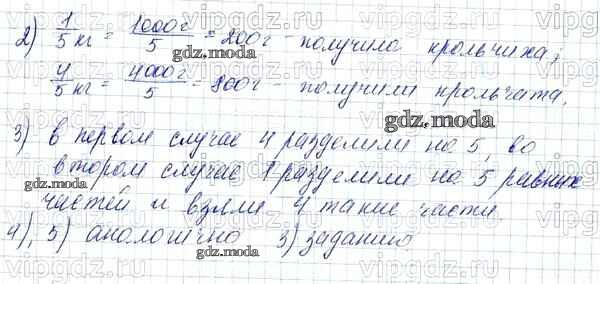 2) 1/5 кг = 1000г/5 = 200г - получила крольчиха;
4/5 кг = 4000г/5 = 800г - получили крольчата.
3) в первом случае 4 разделили на 5, во
втором случае 1 разделили на 5 равных
частей и взяли 4 такие части
4), 5) аналогично 3) заданию
vipgdz.ru
gdz.moda